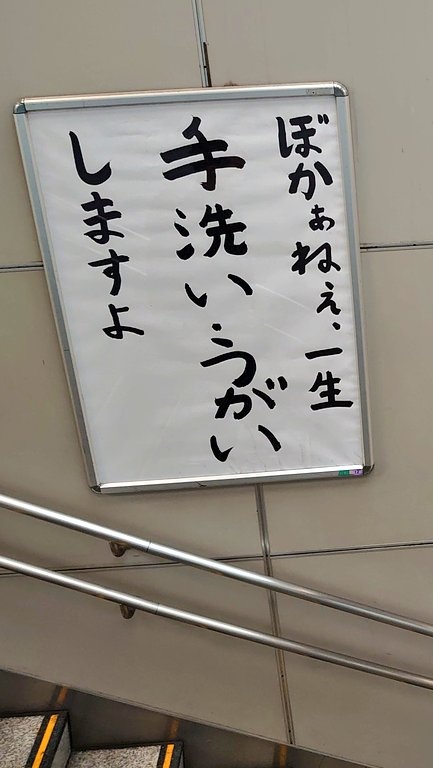 ぼかぁねぇ、一生
手洗い、うがい
しますよ